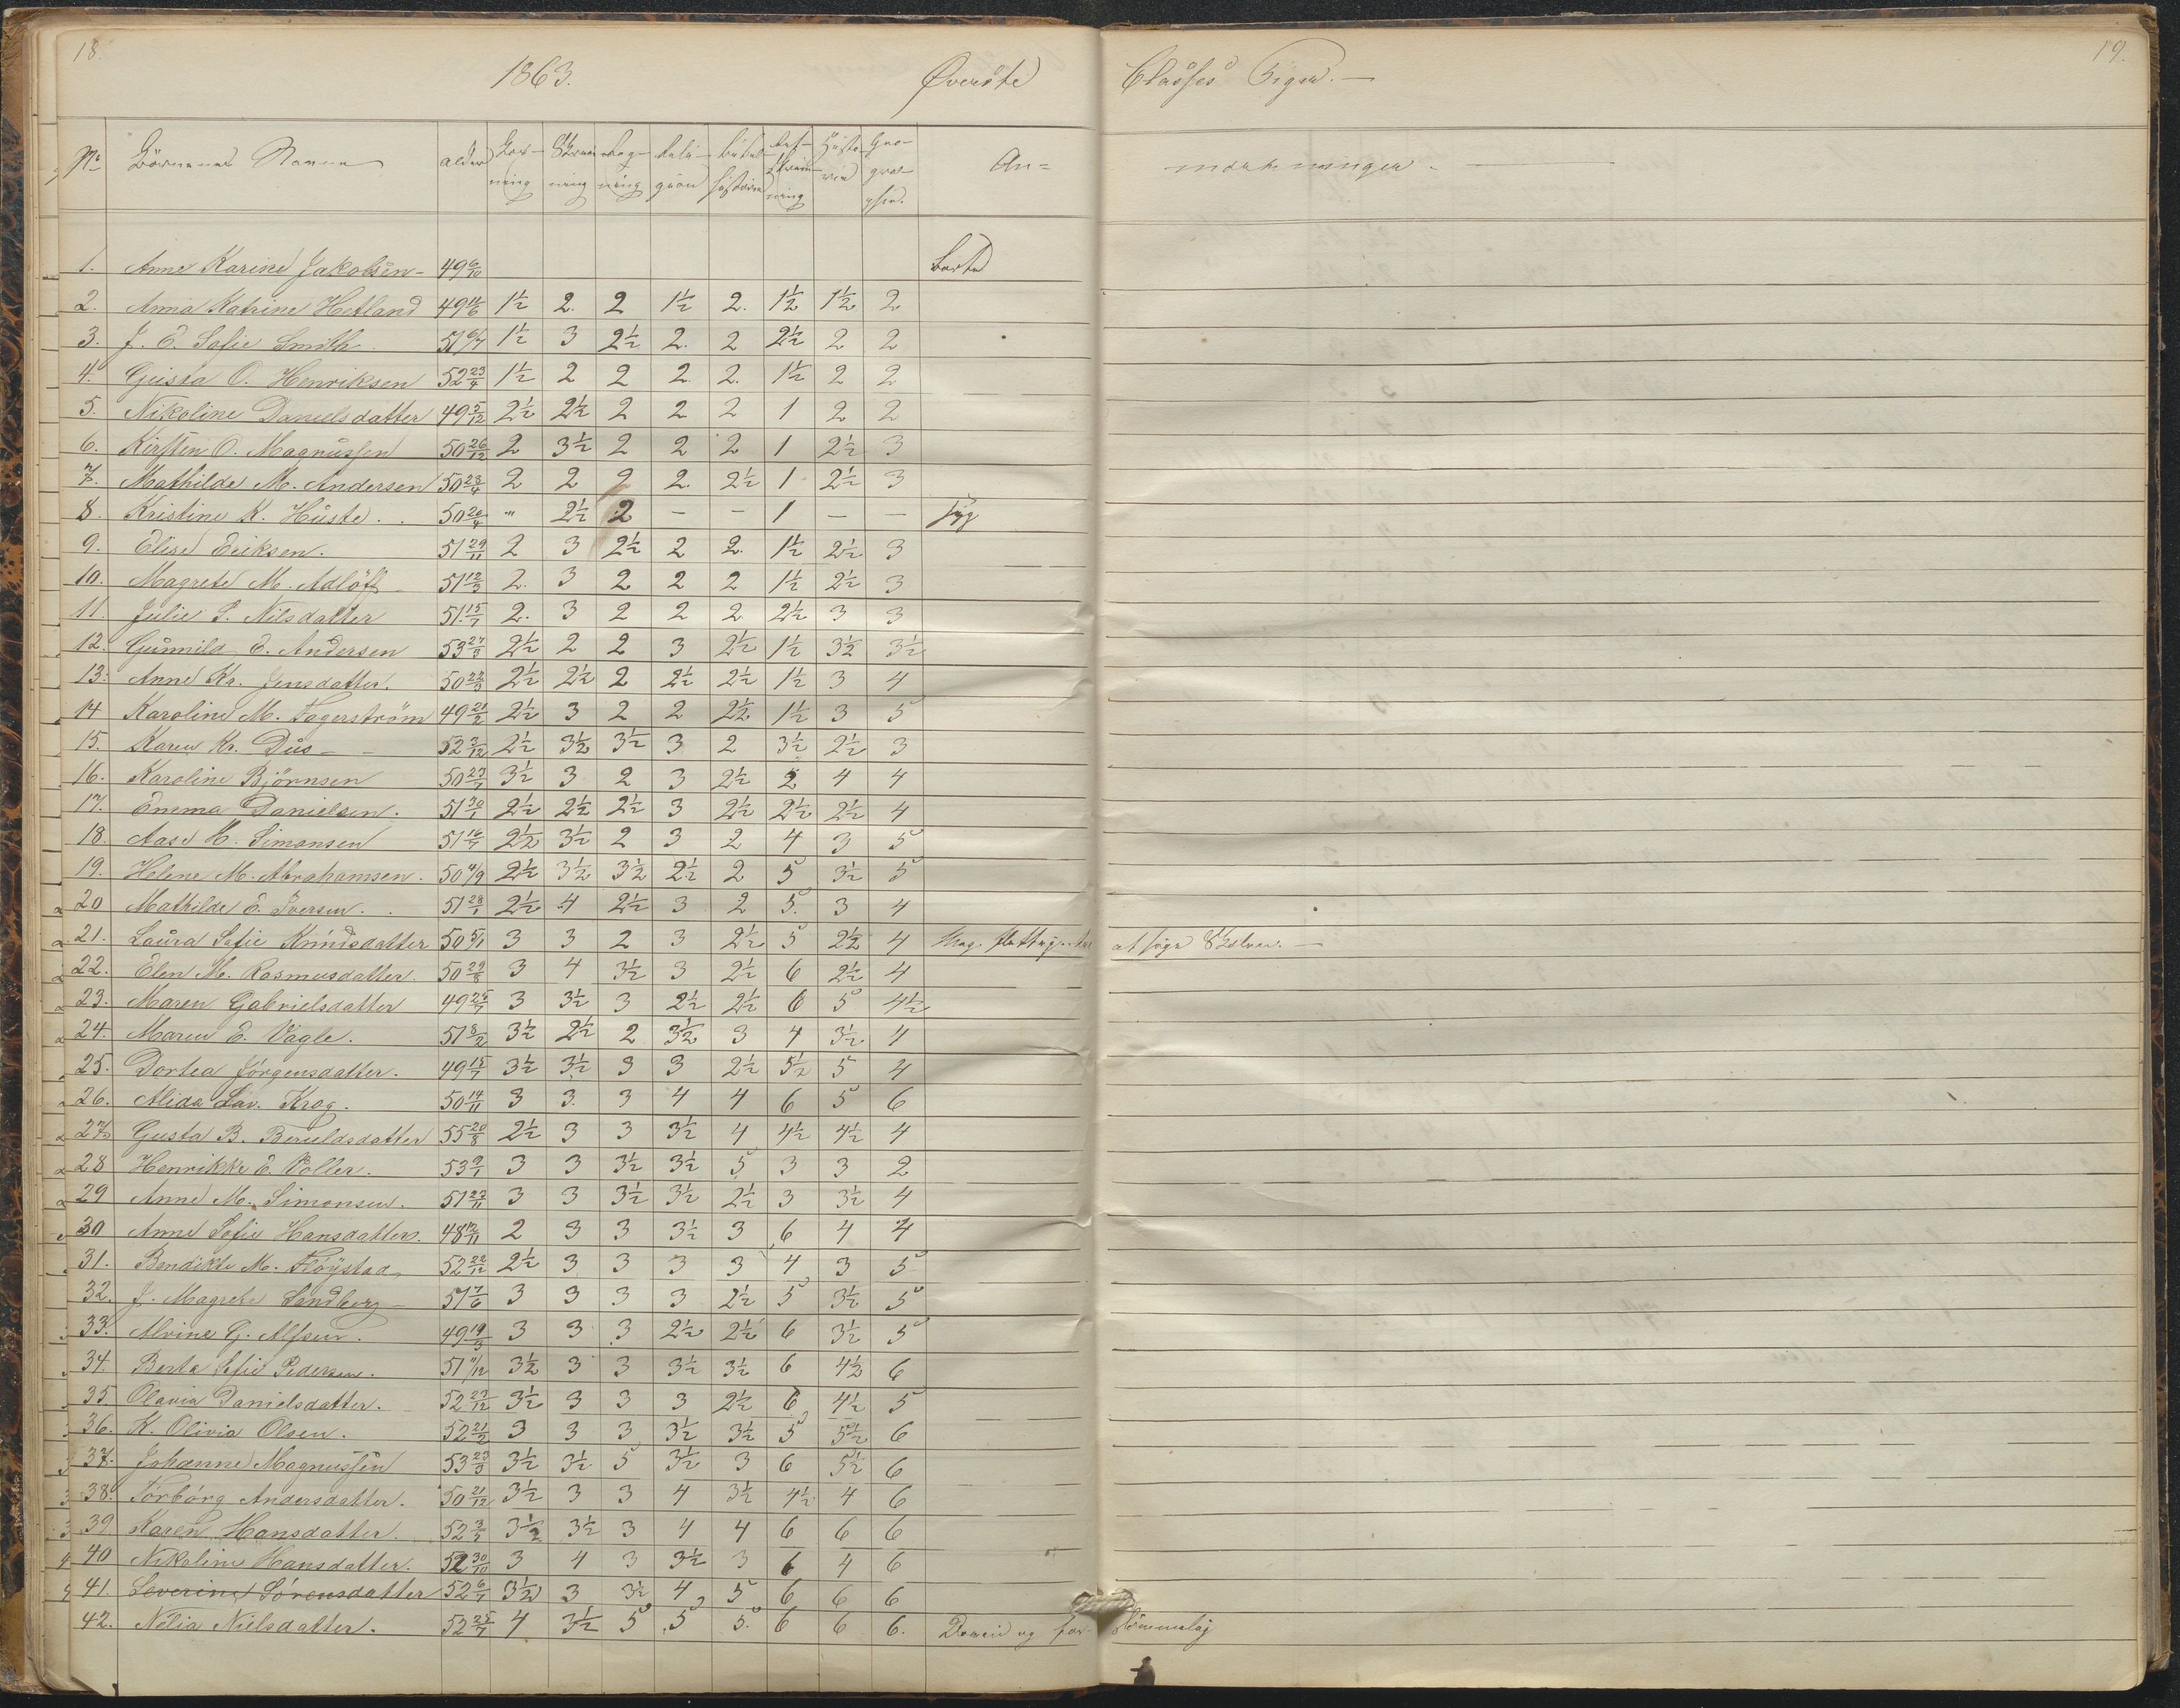 18.
19.
1863. Øverste Classes Piger. —
No Börnenes Navne alder Læs-ning Skriv-ning Reg-ning Reli-gion Bibel-historie Ret-skriv-ning Histo-rie Geo-gra-phie. An-mærkninger.
1. Anne Karine Jakobsen 49 6/10 Borte
2. Anna Katrine Hetland 49 11/6 1½ 2. 2 1½ 2. 1½ 1½ 2
3. J. E. Sofie Smith 51 6/7 1½ 3 2½ 2. 2 2½ 2 2
4. Geista O. Henriksen 52 23/4 1½ 2 2 2. 2. 1½ 2 2
5. Nikoline Danielsdatter 49 5/12 2½ 2½ 2 2 2 1 2 2
6. Kirstin O. Magnussen 50 26/12 2 3½ 2 2 2 1 2½ 3
7. Mathilde M. Andersen 50 28/4 2 2 2 2. 2½ 1 2½ 3
8. Kristine K. Huste. 50 20/4 " 2½ 2 — — 1 — — syg
9. Elise Eriksen. 51 29/11 2 3 2½ 2 2. 1½ 2½ 3
10. Magrete M. Adlöft 51 12/3 2. 3 2 2 2 1½ 2½ 3
11. Julie S. Nilsdatter 51 15/7 2. 3 2 2 2. 2½ 3 3
12. Gunnild E. Andersen 53 27/3 2½ 2 2 3 2½ 1½ 3½ 3½
13. Anne Kr. Jensdatter. 50 22/3 2½ 2½ 2 2½ 2½ 1½ 3 4
14 Karoline M. Fagerström 49 21/2 2½ 3 2 2 2½ 1½ 3 5
15. Karen Kr. Dus 52 3/12 2½ 3½ 3½ 3 2 3½ 2½ 3
16. Karoline Björnsen 50 23/7 3½ 3 2 3 2½ 2 4 4
17. Emma Danielsen. 51 30/1 2½ 2½ 2½ 3 2½ 2½ 2½ 4
18. Aase H. Simonsen 51 16/7 2½ 3½ 2 3 2 4 3 5
19. Helene M. Abrahamsen. 50 4/9 2½ 3½ 3½ 2½ 2 5 3½ 5
20 Mathilde E. Iversen. 51 28/1 2½ 4 2½ 3 2 5. 3 4
21. Laura Sofie Knudsdatter 50 5/1 3 3 2 3 2½ 5 2½ 4
22. Elen M. Rasmusdatter. 50 29/8 3 4 3½ 3 2½ 6 2½ 4
23. Maren Gabrielsdatter 49 25/7 3 3½ 3 2½ 2½ 6 5 4½
24. Maren E. Vagle. 51 8/2 3½ 2½ 2 3½ 3 4 3½ 4
25. Dortea Jörgensdatter. 49 15/7 3½ 3½ 3 3 2½ 5½ 5 4
26. Alida Lav. Krog. 50 14/11 3 3. 3 4 4 6 5 6
27. Gusta B. Beruldsdatter 55 20/8 2½ 3 3 3½ 4 4½ 4½ 4
28 Henrikke E. Voller. 53 9/1 3 3 3½ 3½ 5 3 3 2
29 Anne M. Simonsen. 51 23/11 3 3 3½ 3½ 2½ 3 3½ 4
30 Anne Sofie Hansdatter. 48 12/11 2 3 3 3½ 3 6 4 4
31. Bendikte M. Flöystad 52 22/12 2½ 3 3 3 3 4 3 5
32. J. Magrete Sandberg 51 7/6 3 3 3 3 2½ 5 3½ 5
33. Alvine G. Alfsen. 49 19/3 3 3 3 2½ 2½ 6 3½ 5
34. Berta Sofie Pedersen. 51 11/12 3½ 3 3 3½ 3½ 6 4½ 6
35 Olavia Danielsdatter. 52 23/12 3½ 3 3 3 2½ 6 4½ 5
36. K. Olivia Olsen. 52 21/2 3 3 3 3½ 3½ 5 5½ 6
37. Johanne Magnussen 53 23/3 3½ 3½ 5 3½ 3 6 5½ 6
38. Torborg Andersdatter. 50 21/12 3½ 3 3 4 3½ 4½ 4 6
39 Karen Hansdatter. 52 3/7 3½ 3½ 3 4 4 6 6 6
40 Nikoline Hansdatter. 52 30/10 3 4 3 3½ 3 6 4 6
41. Severine Sörensdatter 52 6/7 3½ 3 3½ 4 5 6 6 6
42. Nelia Nielsdatter. 52 25/7 4 3½ 5 5 5. 6 6 6. Doven og forsömmelig